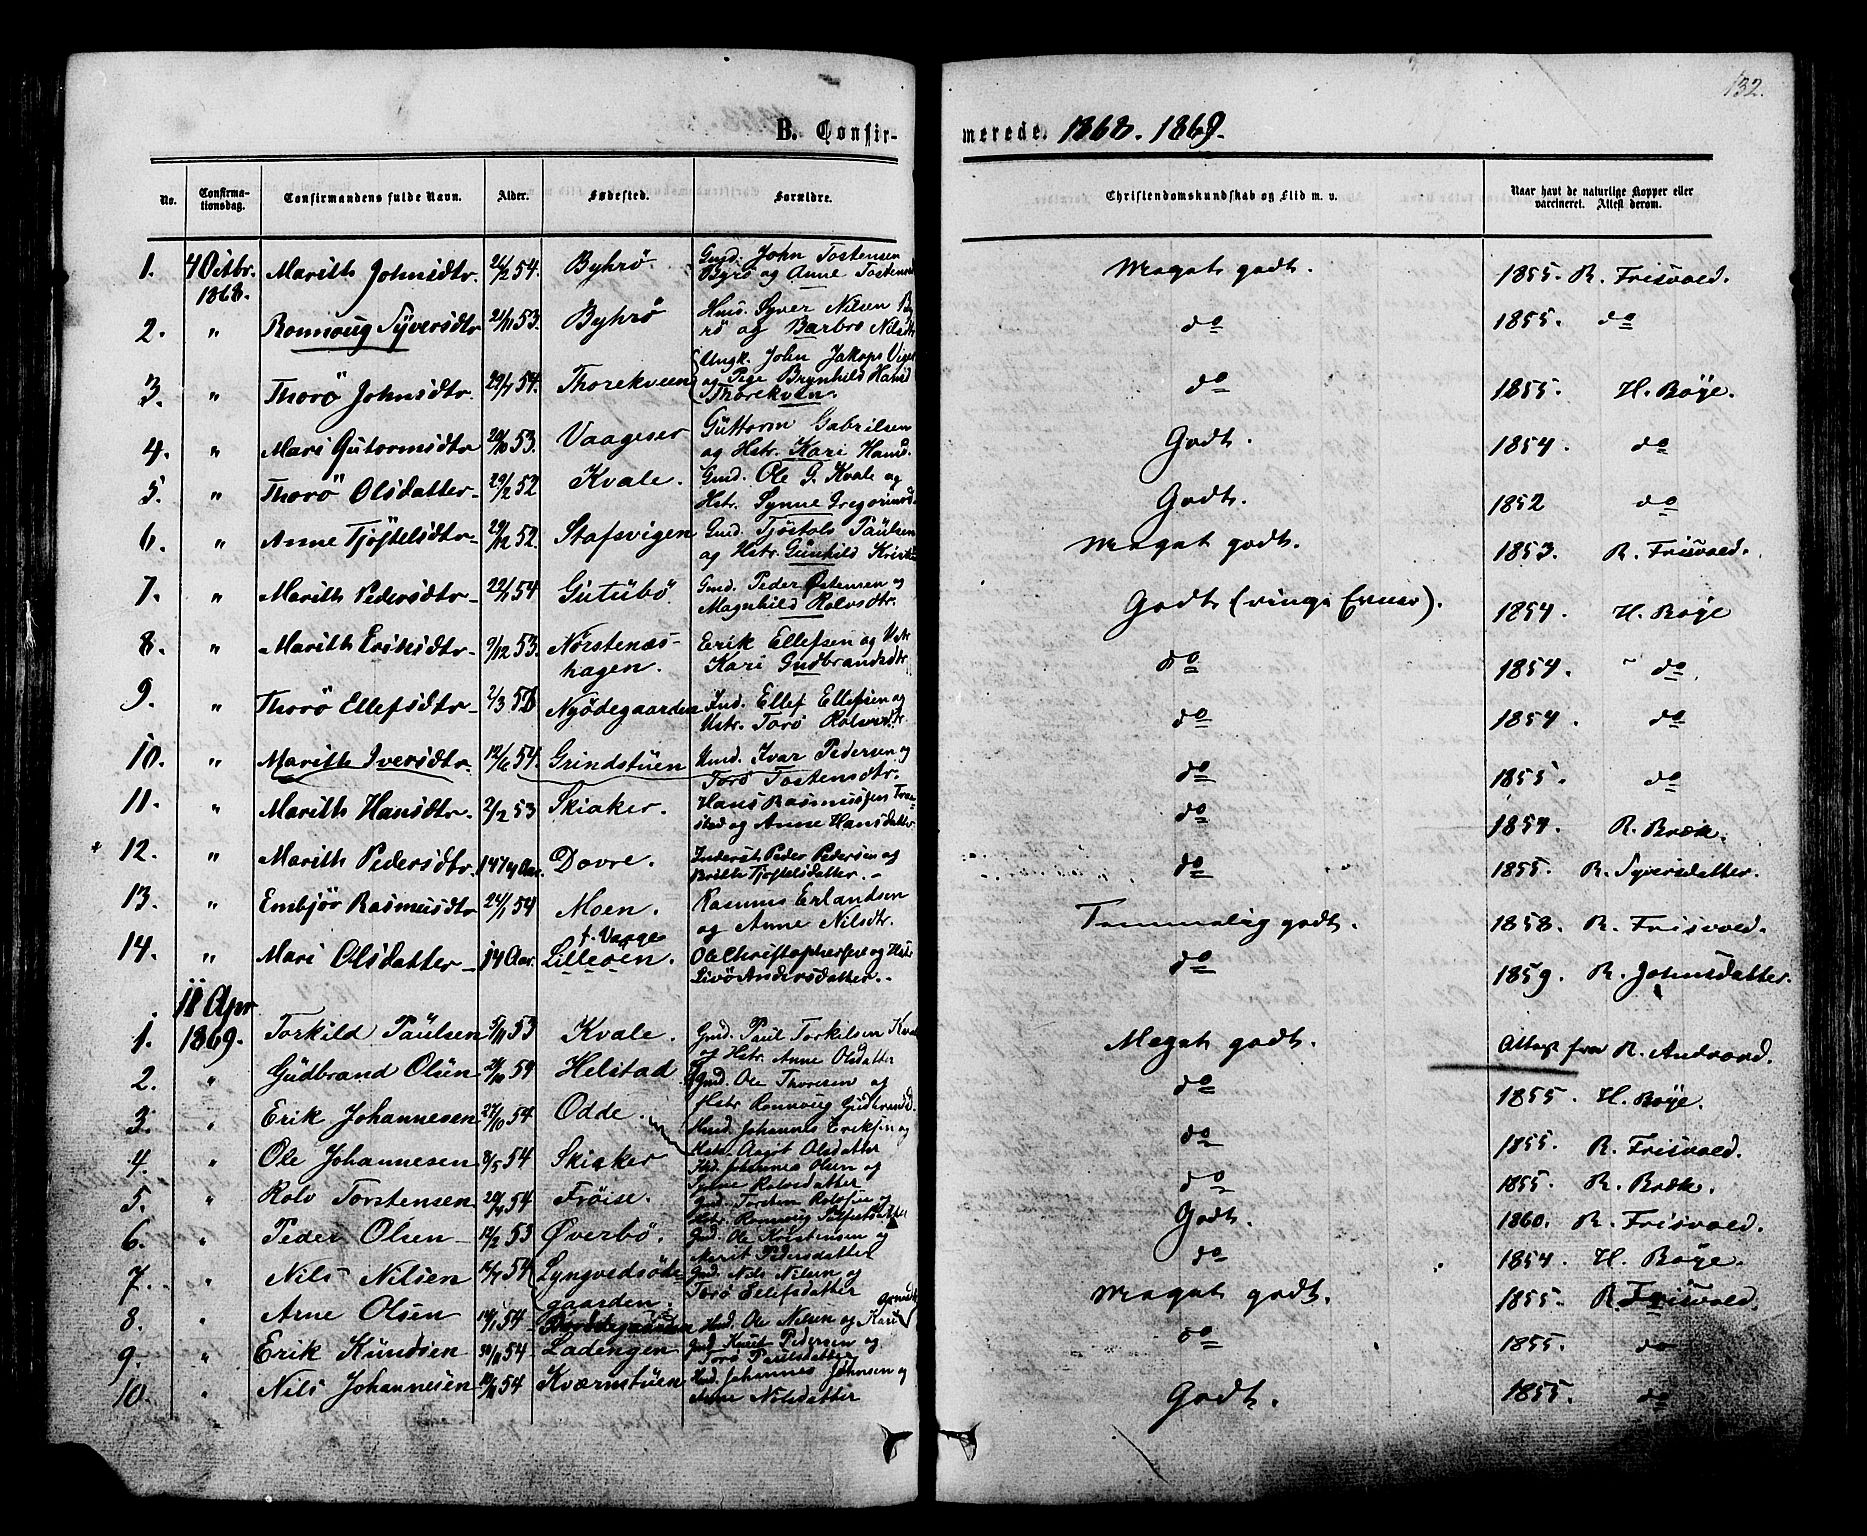 132.
B. Confirmerede. 1868. 1869.
No. Confirmationsdag. Confirmandens fulde Navn. Alder. Fødested. Forældre. Christendomskundskab og Flid m. v. Naar havt de naturlige Kopper eller vaccineret. Attest derom.
1. 4 Octbr. 1868. Marith Johnsdtr. 54. Byhrø. Gmd. John Tostensen Byrø og Anne Meget godt. 1855. R. Frisvold.
2. " Ronnoug Syversdtr 53. Byhrø Huus. Syver Nilsen Byrø og Barbro Nilsdtr do 1855. do
3. " Thorø Johnsdtr. 54. Thorekveen Ungk. John Jakops og Pige Brynhild Hansd Thorekven. do 1855. H. Bøye.
4. " Mari Gutormsdtr 53. Vaageser Guttorm Gabrilsen og Hstr. Kari Hansd. Godt. 1854. do
5. " Thorø Olsdatter 29/2 52 Kvale. Gmd. Ole G. Kvale og Hstr. Synne Godt. 1852 do
6. " Anne Tjøstelsdtr 29/12 52. Stafsvigen Gmd. Tjøstols Paulsen og Hstr. Gunhild Meget godt. 1853. R. Frisvold.
7. " Marith Pedersdtr 54 Gutubø Gmd. Peder Østensen og Magnhild Rolvsdtr. Godt (ringe Evner). 1854. H. Bøye
8. " Marith Eriksdtr 9/12 53. Nørstenæshagen. Erik Ellefsen og Hstr Kari Gudbrandsdtr do 1854. " do
9. " Thorø Ellefsdtr 2/3 53 Nyødegaarden Ind. Ellef Ellefsen og Hstr. Torø do 1854. do
10. " Marith Iversdtr. 12/6 54. Grindstuen Gmd. Ivar Pedersen og Torø Tostensdtr. do 1855. do
11. " Marith Hansdtr 2/2 53 Skiaker. Hans Rasmussen og Anne Hansdatter do 1854. R. Bræk.
12. " Marith Pedersdtr. Dovre. Inderst Peder Pedersen og Britte Tjøstelsdatter. do 1855. R. Syversdatter.
13. " Embjør Rasmusdtr 24/1 54 Moen. Rasmus Erlandsen og Anne Nilsdtr. Temmelig godt. 1858. R. Frisvold.
14. " Mari Olsdatter 14 Aar. f. Vaage Lilleøen. Ole Christophersen og Hstr Livø Andersdatter. do 1859. R. Johnsdatter.
11 Apr
1. 1869. Torkild Paulsen 53 Kvale. Gmd. Paul Torkilsen Kvale og Hstr. Anne Olsdatter Meget godt. Attest fra R. Andvord.
2. " Gudbrand Olsen Helstad Gmd. Ole Thoresen og Hstr Ronnoug Gudbrandsd. do 1855. H. Bøye.
3. " Erik Johannesen 27/10 54 Odde. Gmd. Johannes Eriksen og Hstr. Aagot Olsdatter do 1855. R. Frisvold.
4. " Ole Johannesen 8/5 54 Skiaker Johannes Olsen og Rolvsdatter do 1855. R. Bræk.
5. " Rolv Torstensen 54 Frøise. Gmd. Torsten Rolvsen og Hstr. Ronnoug Godt. 1860. R. Frisvold.
6. " Peder Olsen 53 Øverbø. Gmd. Ole og Marit Pedersdatter do 1854. H. Bøye.
7. " Nils Nilsen 54 Lyngvedsødegaarden. Gmd. Nils Nilsen og Torø Ellefsdatter Meget godt. 1855. R. Frisvold.
8. " Arne Olsen 54 Hmd. Ole Nilsen og Kari do 1855. do
9. " Erik Knudsen 54 Ladingen Gmd Knut Pedersen og Torø Paulsdatter
10. " Nils Johannesen 54 Kværnstuen Hmd. Johannes Johnsen og Anne Nilsdatter Godt. 1855. do